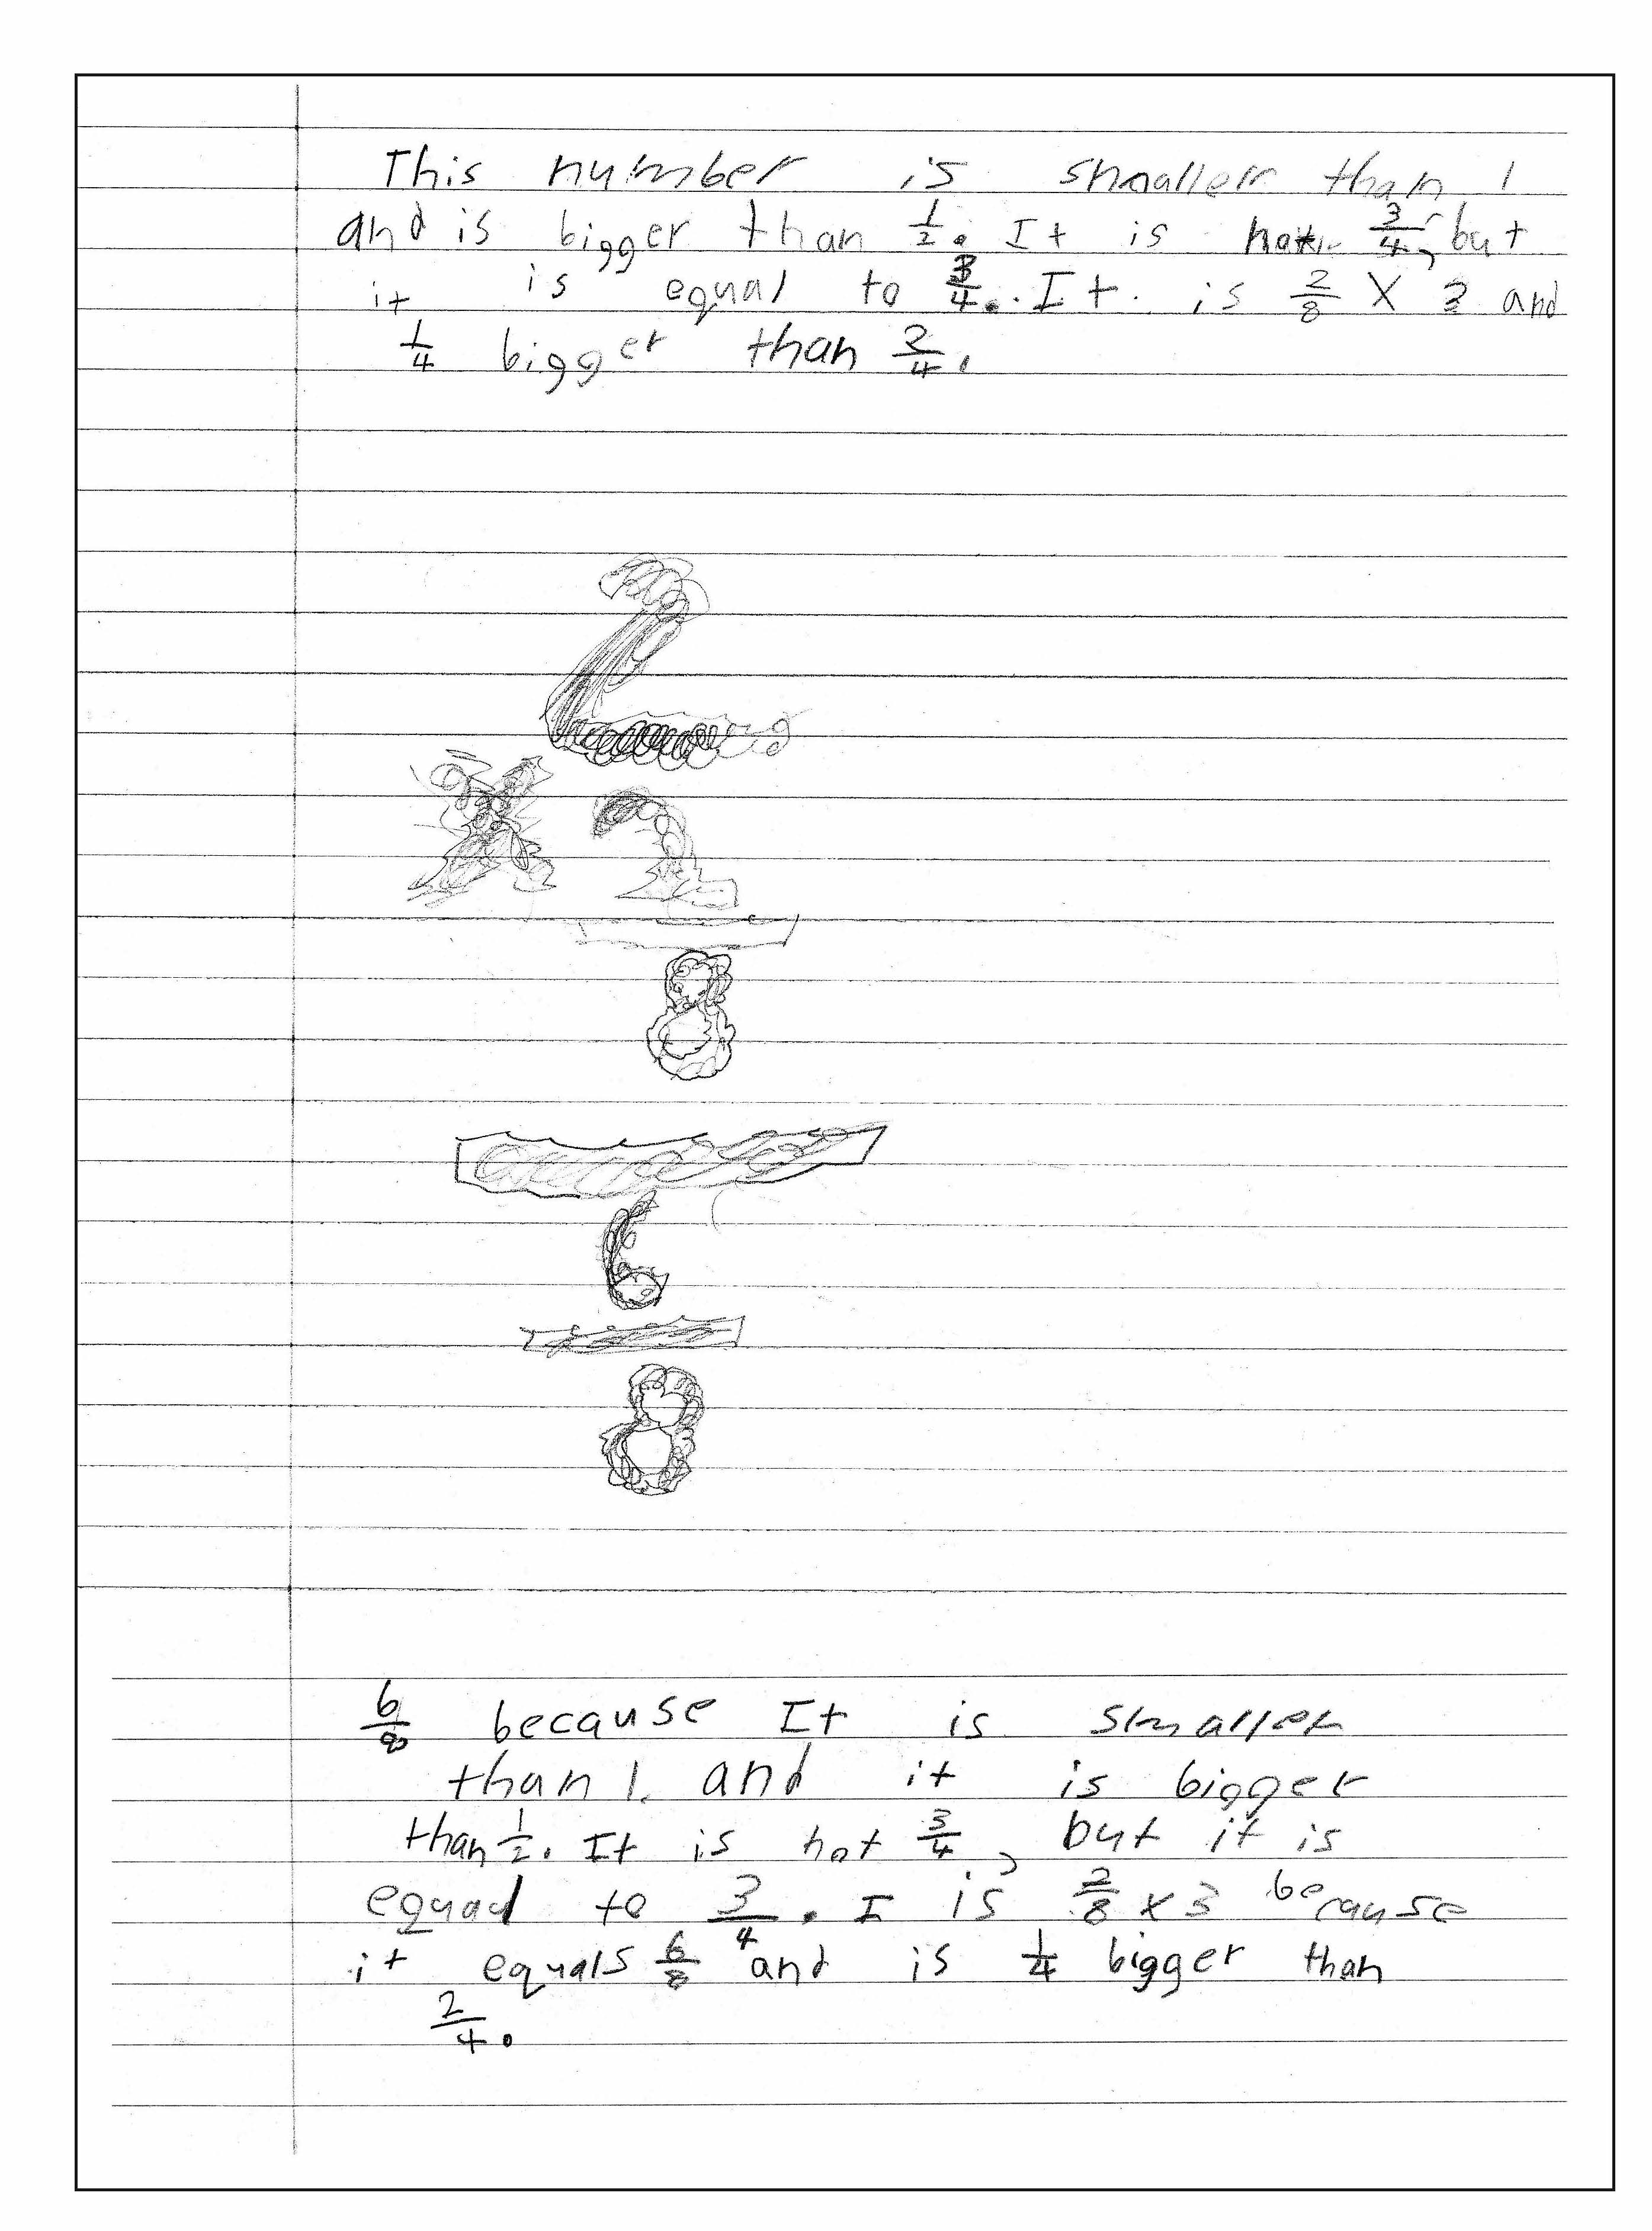 This number is smaller than 1
and is bigger than 1/2. It is not 3/4, but
it is equal to 3/4. It is 2/8 X 3 and
1/4 bigger than 2/4.
X 2
8
6
8
6/8 because It is smaller
than 1. and it is bigger
than 1/2. It is not 3/4, but it is
equal to 3/4. I is 2/8 x 3 because
it equals 6/8 and is 1/4 bigger than
2/4.